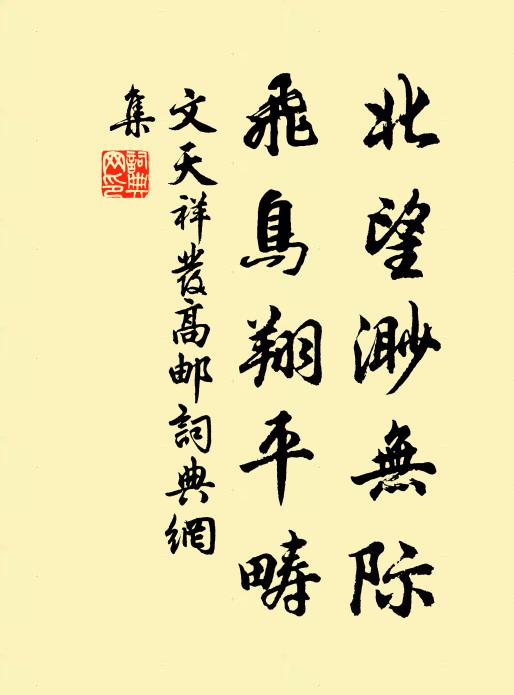 北望渺無际
飛鳥翔平畴
文天祥發高邮詞典網
集
詞典
网印